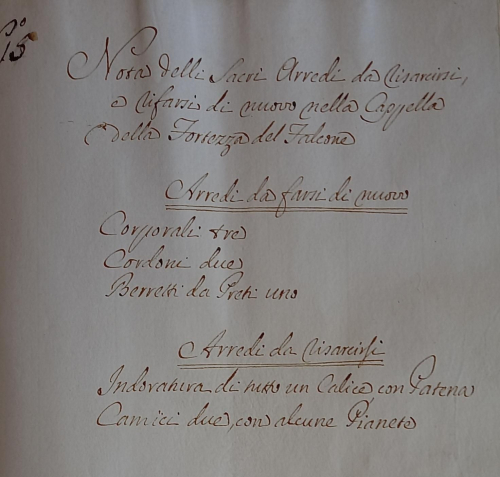 No
15
Nota delli Sacri Arredi da risarcirsi,
e rifarsi di nuovo nella Cappella
della Fortezza del Falcone
Arredi da farsi di nuovo
Corporali tre
Cordoni due
Berretti da Preti uno
Arredi da risarcirsi
Indoratura di tutto un Calice con Patena
Camici due, con alcune Pianete